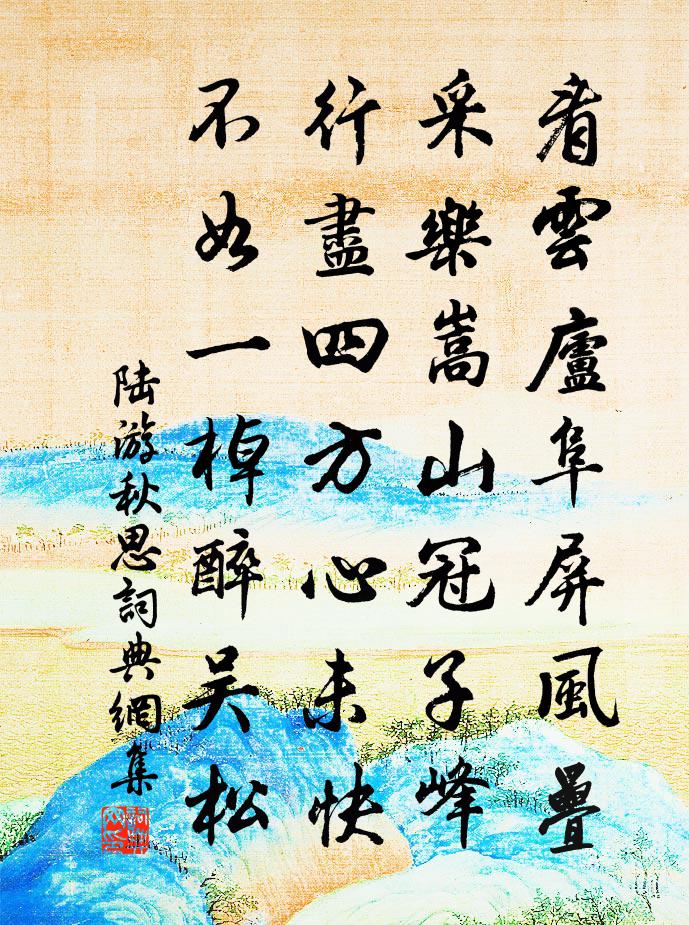 看雲廬阜屏風疊
采樂嵩山冠子峰
行盡四方心未快
不如一棹醉吴松
陆游秋思詞典網集